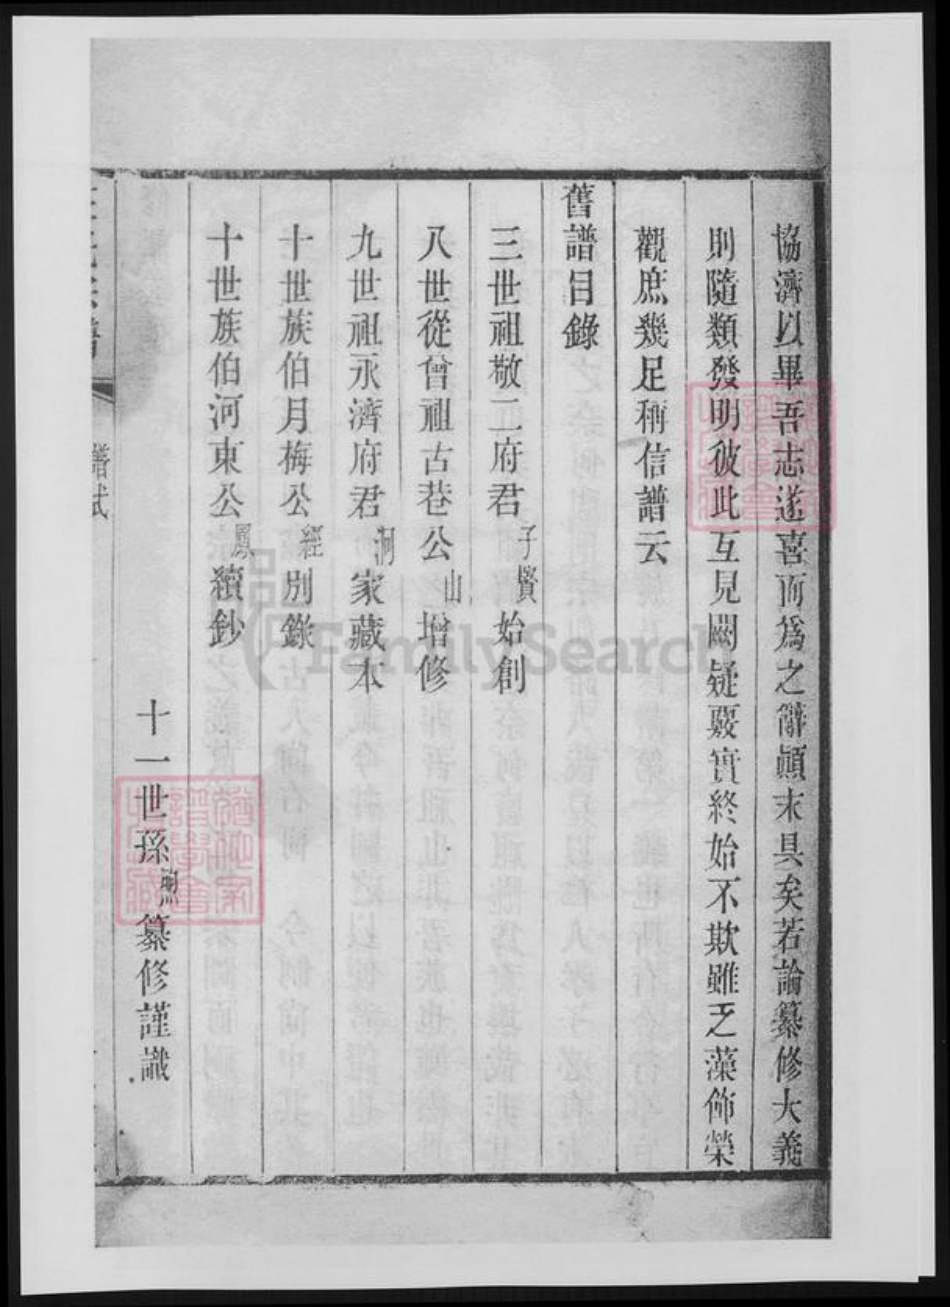 協濟以畢吾志遂喜而爲之辭顛末具矣若論纂修大義
則隨類發明彼此互見闕疑覈實終始不欺雖乏藻飾榮
觀庶幾足稱信譜云
舊譜目錄
三世祖敬二府君子賢始創
八世從曾祖古巷公山增修
九世祖永濟府君洞家藏本
十世族伯月梅公經別錄
十世族伯河東公鳳續鈔
十一世孫纂修謹識
FamilySearch